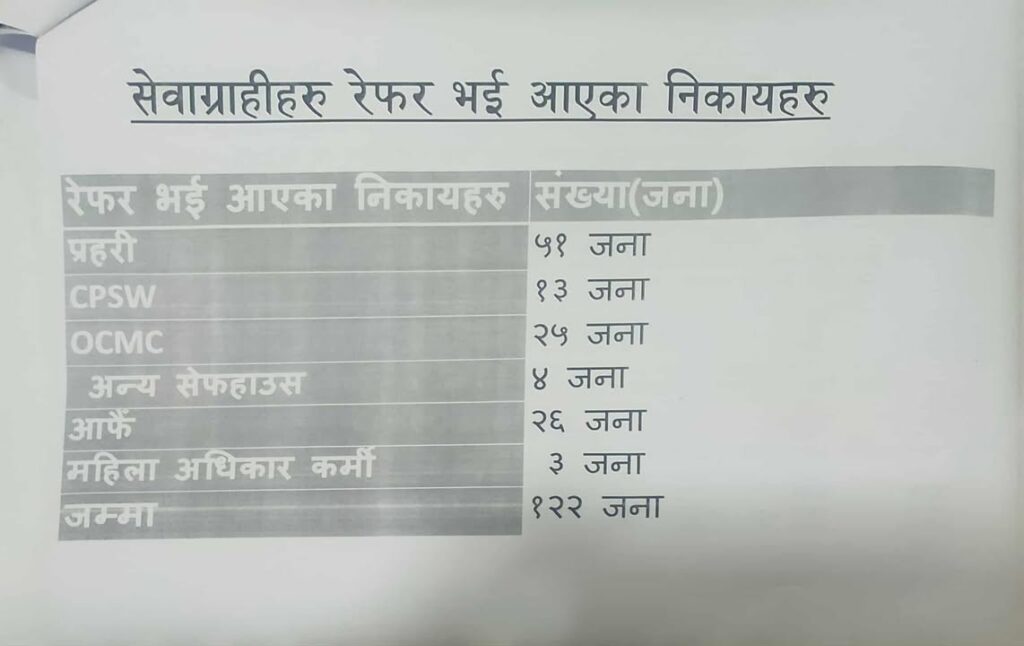 सेवाग्राहीहरु रेफर भई आएका निकायहरु
रेफर भई आएका निकायहरु संख्या(जना)
प्रहरी ५१ जना
CPSW १३ जना
OCMC २५ जना
अन्य सेफहाउस ४ जना
आफैँ २६ जना
महिला अधिकार कर्मी ३ जना
जम्मा १२२ जना